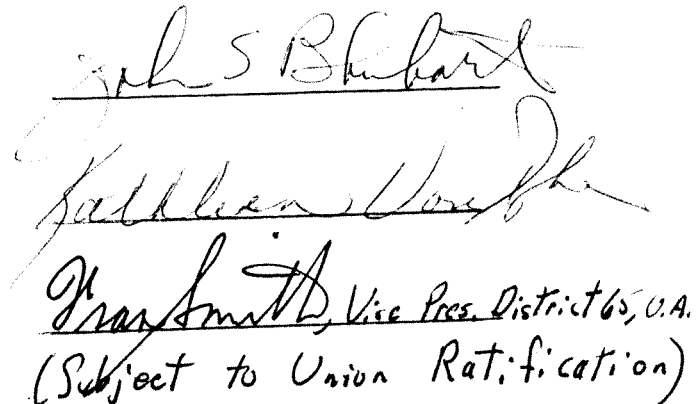 John S
Kathleen
Fran Smith, Vice Pres. District 65, U.A.
(Subject to Union Ratification)